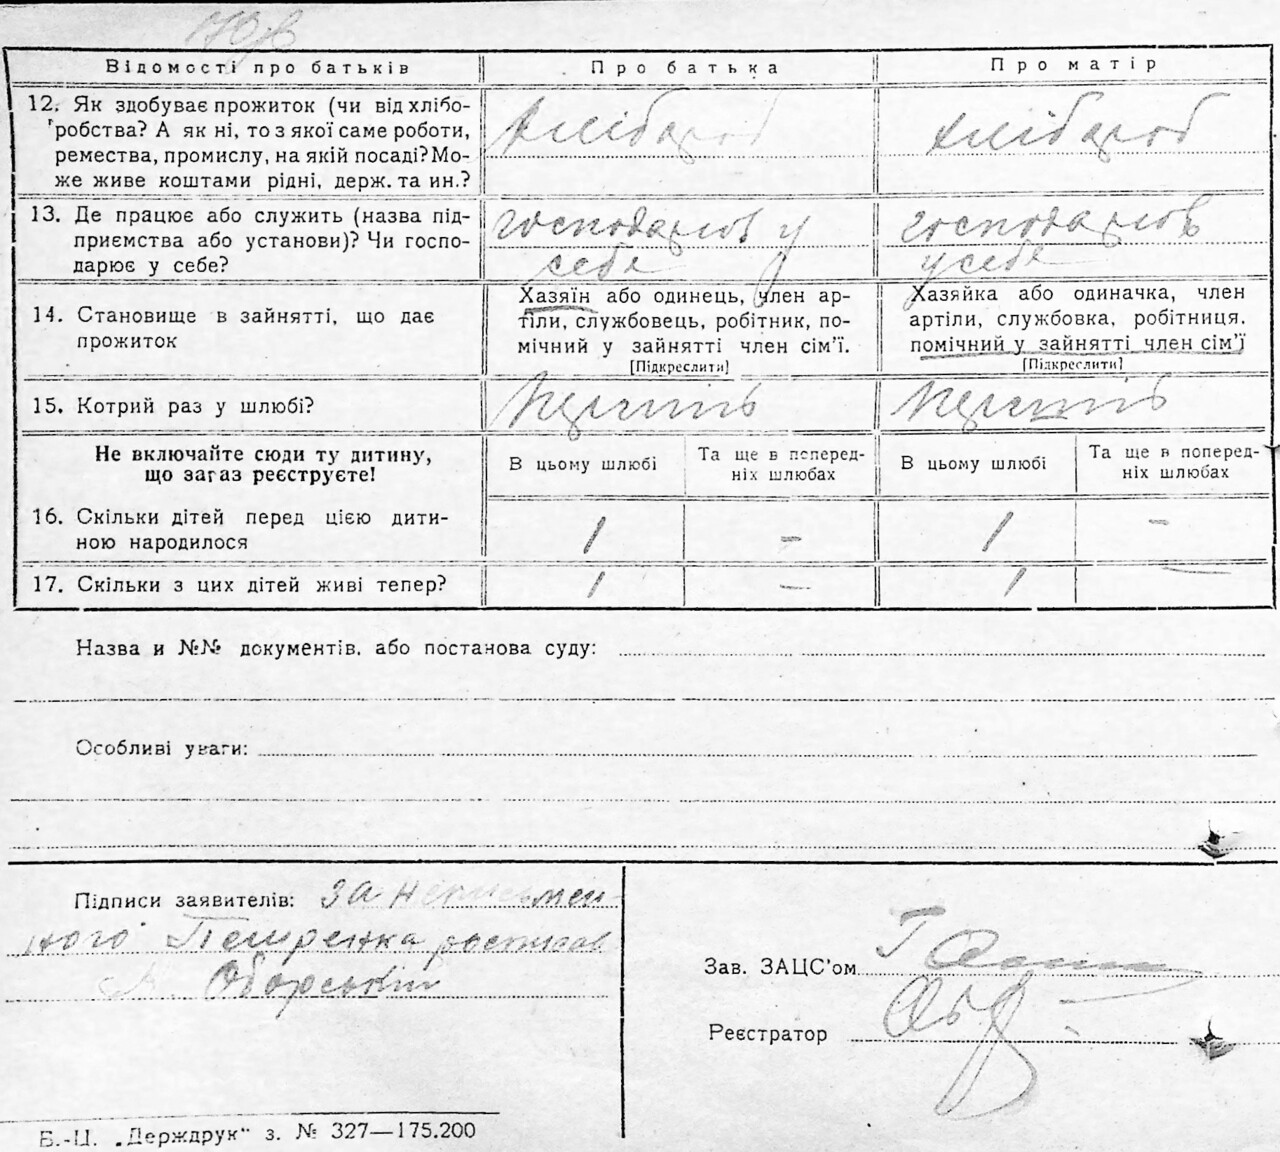 Відомості про батьків Про батька Про матір
12. Як здобуває прожиток (чи від хлібо-
робства? А як ні, то з якої саме роботи,
ремества, промислу, на якій посаді? Мо-
же живе коштами рідні, держ. та ин.?
Хлібороб Хлібороб
13. Де працює або служить (назва під-
приємства або установи)? Чи госпо-
дарює у себе?
господарюв у
себе
господарюв
у себе
14. Становище в зайнятті, що дає
прожиток
Хазяїн або одинець, член ар-
тіли, службовець, робітник, по-
мічний у зайнятті член сім'ї.
[Підкреслити]
Хазяйка або одиначка, член
артіли, службовка, робітниця.
помічний у зайнятті член сім'ї
[Підкреслити]
15. Котрий раз у шлюбі?
Не включайте сюди ту дитину,
що загаз реєструєте!
В цьому шлюбі Та ще в поперед-
ніх шлюбах
В цьому шлюбі Та ще в поперед-
ніх шлюбах
16. Скільки дітей перед цією дити-
ною народилося
1 - 1 -
17. Скільки з цих дітей живі тепер?
1 - 1 -
Назва и №№ документів, або постанова суду:
Особливі уваги:
Підписи заявителів: за неписьмен-
ного Петренка росписав
А. Оборський
Зав. ЗАЦС'ом
Реєстратор
Б.-Ц. „Держдрук" з. № 327—175.200